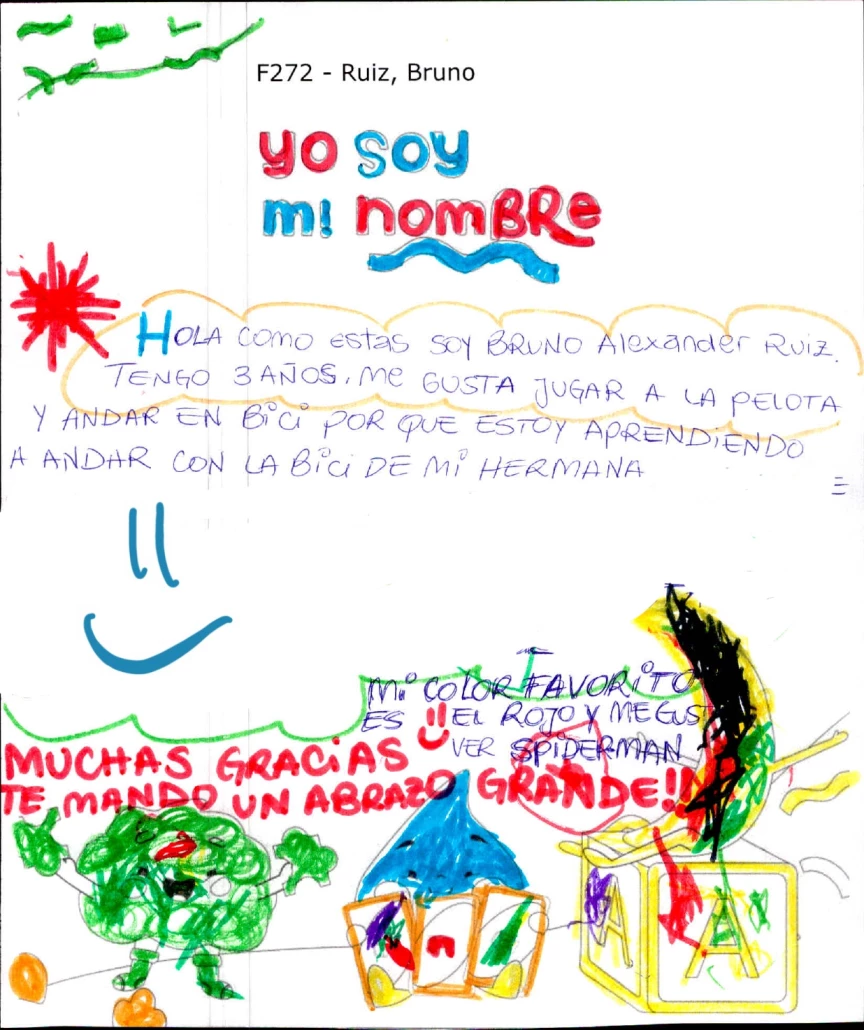 F272 - Ruiz, Bruno
yo soy
mi nombre
HOLA como estas soy BRUNO Alexander Ruiz.
TENGO 3 AÑOS. Me GUSTA JUGAR A LA PELOTA
Y ANDAR EN Bici POR QUE ESTOY APRENDIENDO
A ANDAR CON LA Bici DE Mi HERMANA
Mi COLOR FAVORiTO
ES EL ROJO Y ME GUST
VER SPIDERMAN
MUCHAS GRACiAS
TE MANDO UN ABRAZO GRANDE!!
A A